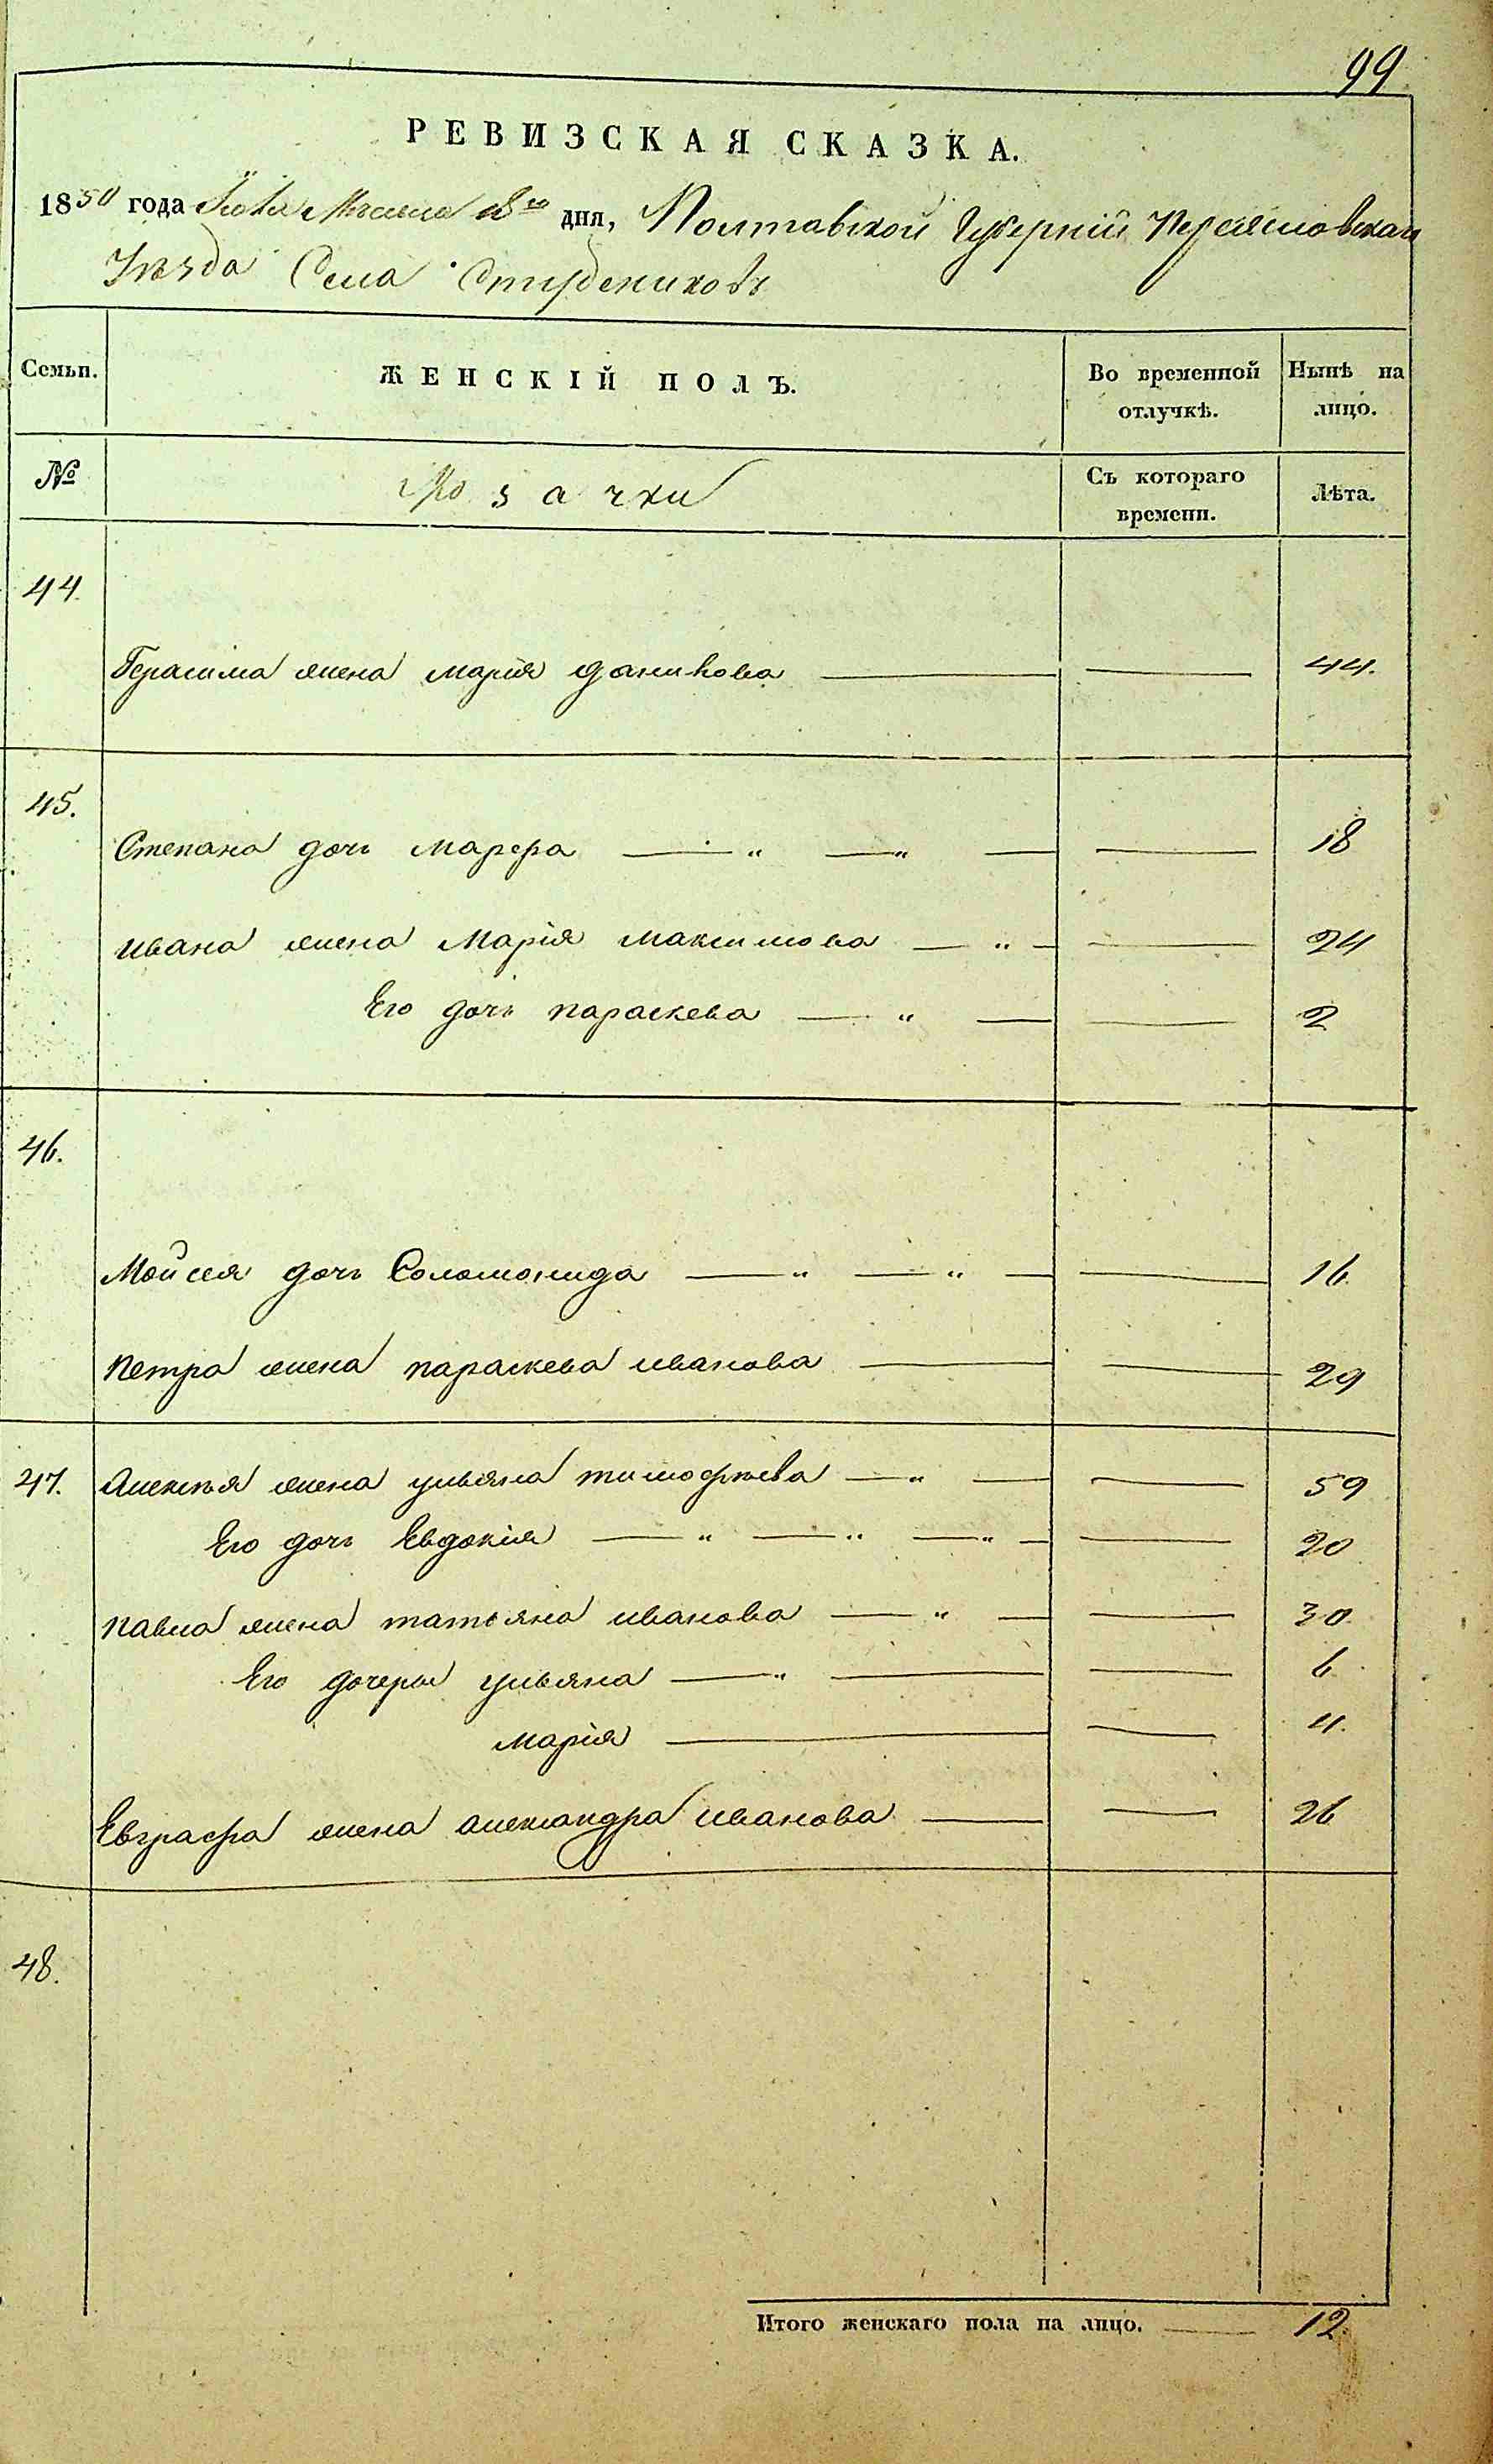 99
РЕВИЗСКАЯ СКАЗКА.
1850 года Мѣсяца дня, Полтавской Губерніи Переясловскаго
Уѣзда Села Студениковъ
Семьи. ЖЕНСКІЙ ПОЛЪ. Во временной отлучкѣ. Нынѣ на лицо.
№ Козачки Съ котораго времени. Лѣта.
44.
Герасима жена марія данилова — — 44.
45.
Степана дочь марфа — " — " — — 18
ивана жена Марія максимова — " — — 24
Его дочь параскева — " — — 2
46.
Мойсея дочь Соломонида — " — " — — 16.
петра жена параскева иванова — — 29
47. Алексѣя жена ульяна тимофѣева — " — — 59
Его дочь Евдокія — " — " — " — — 20
павла жена татьяна иванова — " — — 30.
Его дочеры ульяна — " — — 6.
марія — — 4.
Евграфа жена александра иванова — — 26
48.
Итого женскаго пола на лицо. — 12.